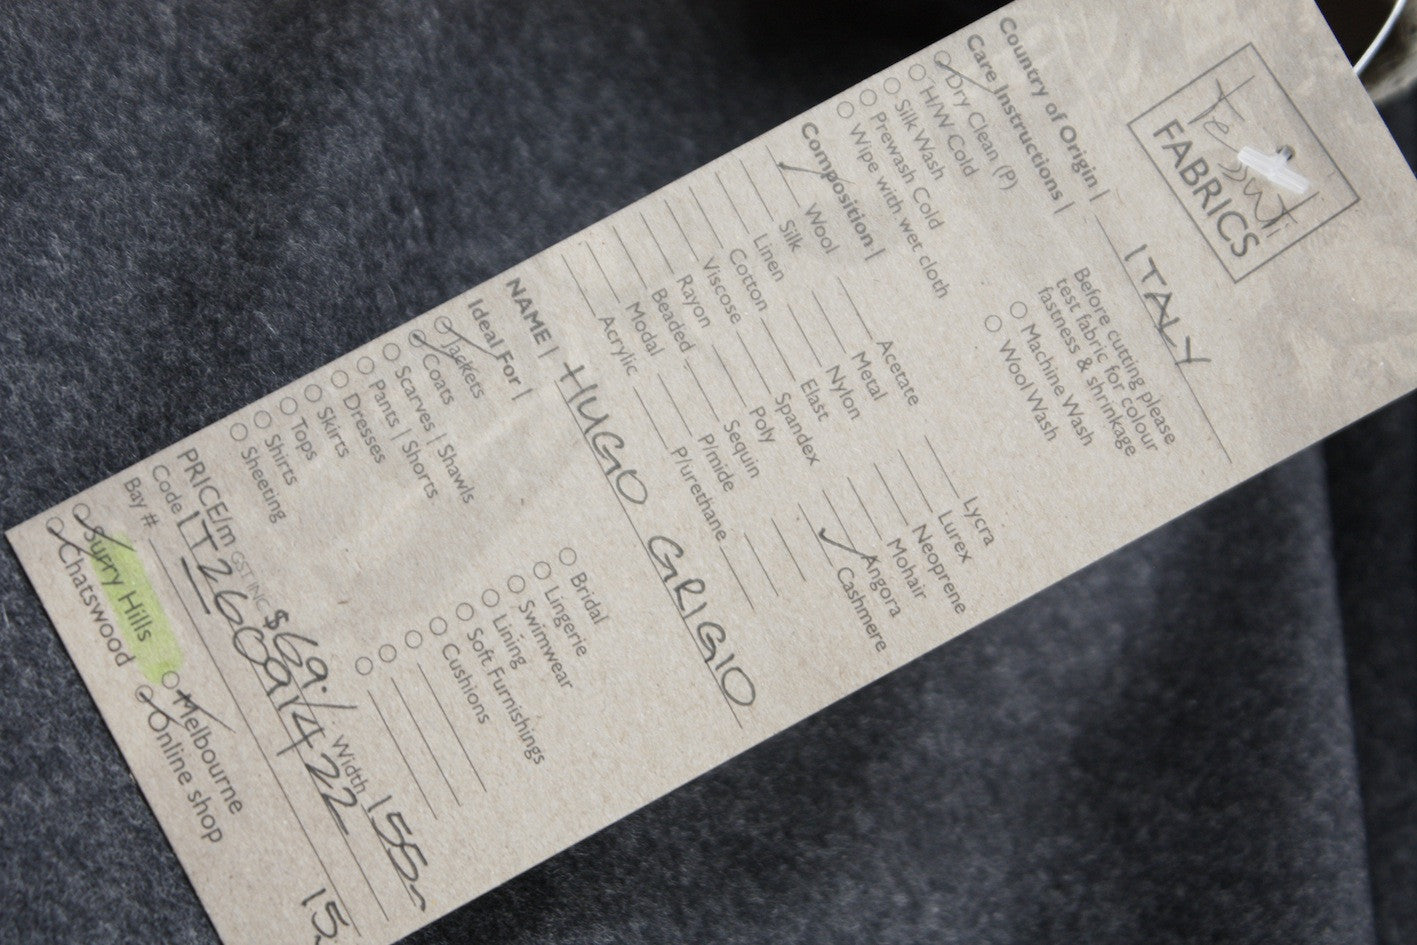 Tessuti
FABRICS
Country of Origin | ITALY
Care Instructions |
Dry Clean (P)
H/W Cold
Silk Wash
Prewash Cold
Wipe with wet cloth
Before cutting please
test fabric for colour
fastness & shrinkage
Machine Wash
Wool Wash
Composition |
Wool
Silk
Linen
Cotton
Viscose
Rayon
Beaded
Modal
Acrylic
Acetate
Metal
Nylon
Elast
Spandex
Poly
Sequin
P/mide
P/urethane
Lycra
Lurex
Neoprene
Mohair
Angora
Cashmere
NAME | HUGO GRIGIO
Ideal For |
Jackets
Coats
Scarves | Shawls
Pants | Shorts
Dresses
Skirts
Tops
Shirts
Sheeting
Bridal
Lingerie
Swimwear
Lining
Soft Furnishings
Cushions
PRICE/m GST INC $69. Width 155
Code
Bay #
Surry Hills
Chatswood
Melbourne
Online shop